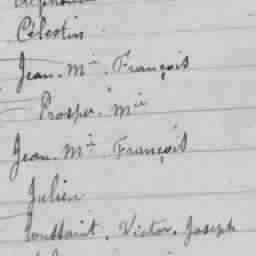 Célestin
Jean. Mie. François
Prosper. Mie
Jean. Mie. François
Julien
Toussaint. Victor. Joseph